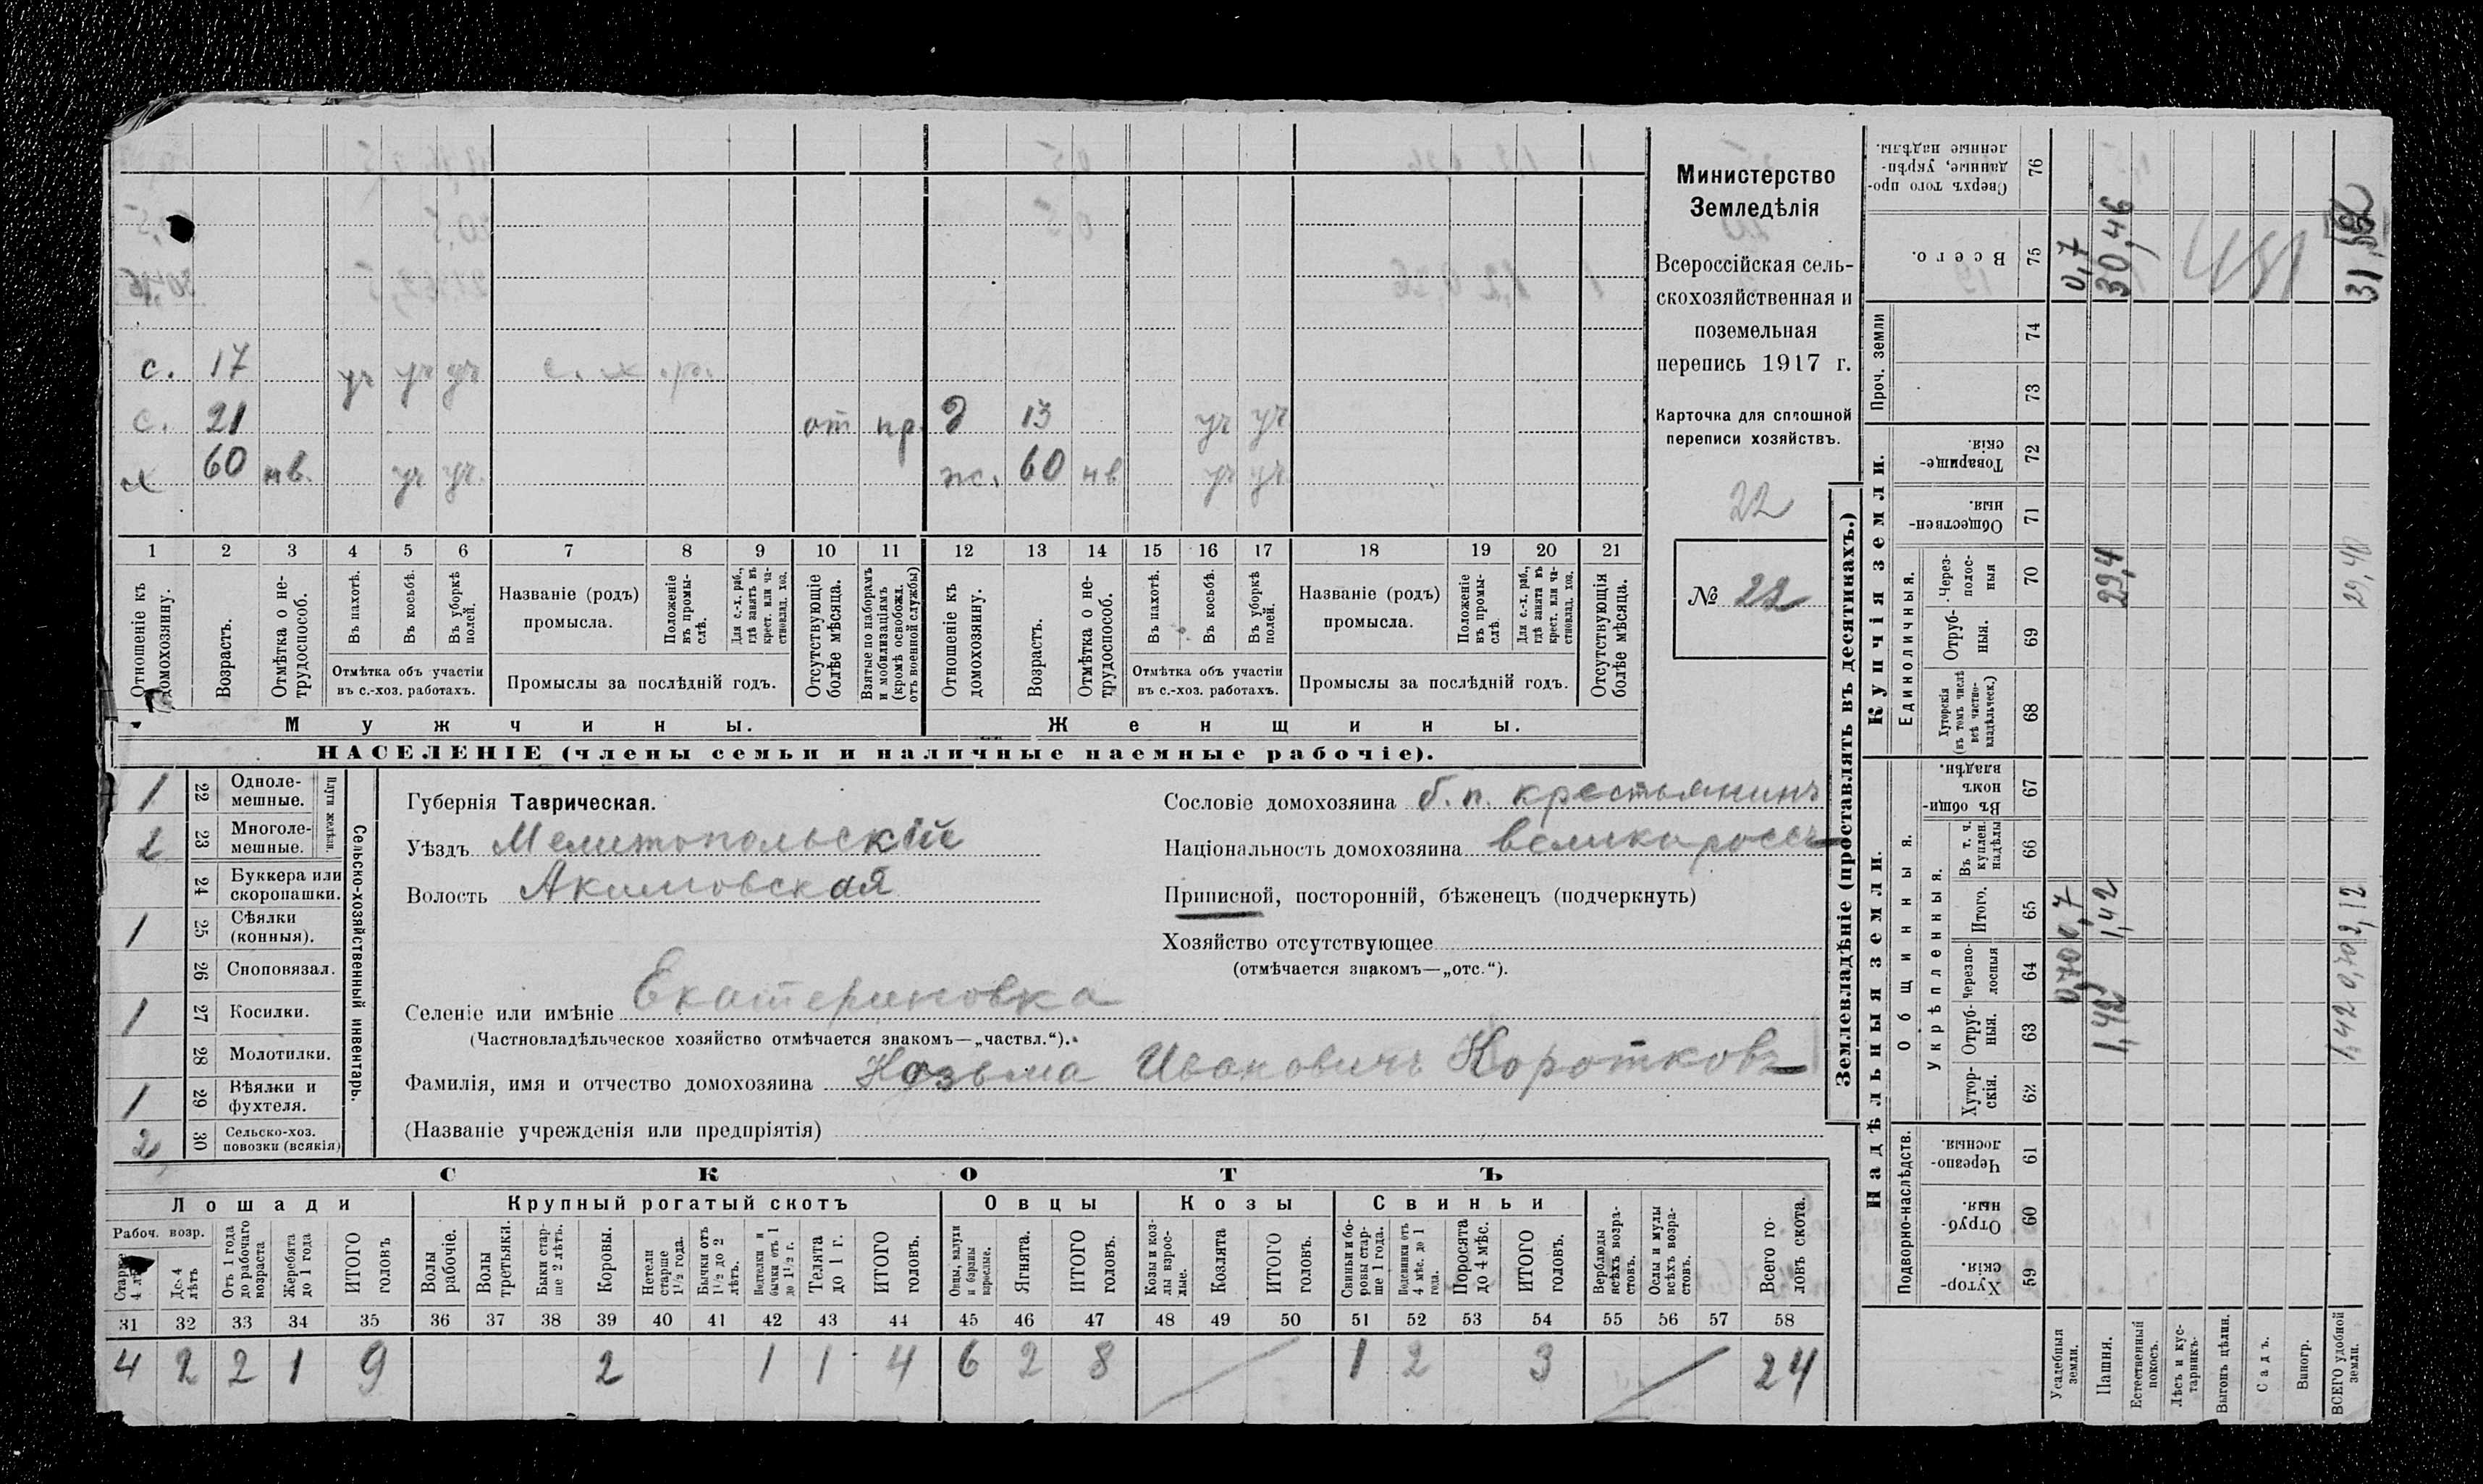 с. 17 уч уч уч с. х. р.
с. 21 от пр. д 13 уч уч
х 60 нв. уч уч. ж. 60 нв уч уч.
1 2 3 4 5 6 7 8 9 10 11 12 13 14 15 16 17 18 19 20 21
Отношеніе къ домохозяину.
Возрастъ.
Отмѣтка о нетрудоспособ.
Въ пахотѣ.
Въ косьбѣ.
Въ уборкѣ полей.
Отмѣтка объ участіи
въ с.-хоз. работахъ.
Названіе (родъ)
промысла.
Положеніе въ промыслѣ.
Для с.-х. раб., гдѣ занятъ въ крест. или частновлад. хоз.
Промыслы за послѣдній годъ.
Отсутствующіе болѣе мѣсяца.
Взятые по наборамъ и мобилизаціямъ (кромѣ освобожд. отъ военной службы)
Отношеніе къ домохозяину.
Возрастъ.
Отмѣтка о нетрудоспособ.
Въ пахотѣ.
Въ косьбѣ.
Въ уборкѣ полей.
Отмѣтка объ участіи
въ с.-хоз. работахъ.
Названіе (родъ)
промысла.
Положеніе въ промыслѣ.
Для с.-х. раб., гдѣ занята въ крест. или частновлад. хоз.
Промыслы за послѣдній годъ.
Отсутствующія болѣе мѣсяца.
Мужчины. Женщины.
НАСЕЛЕНІЕ (члены семьи и наличные наемные рабочіе).
Министерство
Земледѣлія
Всероссійская сель-
скохозяйственная и
поземельная
перепись 1917 г.
Карточка для сплошной
переписи хозяйствъ.
22
№ 22
Сельско-хозяйственный инвентарь.
Плуги желѣзн.
1 22 Одноле-
мешные.
2 23 Многоле-
мешные.
24 Буккера или
скоропашки.
1 25 Сѣялки
(конныя).
26 Сноповязал.
1 27 Косилки.
28 Молотилки.
1 29 Вѣялки и
фухтеля.
2 30 Сельско-хоз.
повозки (всякія)
Губернія Таврическая.
Уѣздъ Мелитопольскій
Волость Акимовская
Сословіе домохозяина б. п. крестьянинъ
Національность домохозяина великороссъ
Приписной, посторонній, бѣженецъ (подчеркнуть)
Хозяйство отсутствующее
(отмѣчается знакомъ—„отс.“).
Селеніе или имѣніе Екатериновка
(Частновладѣльческое хозяйство отмѣчается знакомъ—„частвл.“).
Фамилія, имя и отчество домохозяина Козьма Ивановичъ Коротковъ
(Названіе учрежденія или предпріятія)
СКОТЪ
Лошади Крупный рогатый скотъ Овцы Козы Свиньи
Рабоч. возр.
Старше 4 лѣтъ
До 4 лѣтъ
Отъ 1 года до рабочаго возраста
Жеребята до 1 года
ИТОГО головъ
Волы рабочіе.
Волы третьяки.
Быки старше 2 лѣтъ.
Коровы.
Нетели старше 1½ года.
Бычки отъ 1½ до 2 лѣтъ.
Подтелки и бычки отъ 1 до 1½ г.
Телята до 1 г.
ИТОГО головъ.
Овцы, валухи и бараны взрослые.
Ягнята.
ИТОГО головъ.
Козы и козлы взрослые.
Козлята
ИТОГО головъ.
Свиньи и боровы старше 1 года.
Подсвинки отъ 4 мѣс. до 1 года.
Поросята до 4 мѣс.
ИТОГО головъ.
Верблюды всѣхъ возрастовъ.
Ослы и мулы всѣхъ возрастовъ.
Всего головъ скота.
31 32 33 34 35 36 37 38 39 40 41 42 43 44 45 46 47 48 49 50 51 52 53 54 55 56 57 58
4 2 2 1 9 2 1 1 4 6 2 8 1 2 3 24
Землевладѣніе (проставлять въ десятинахъ.)
Надѣльныя земли. Купчія земли. Проч. земли
Подворно-наслѣдств. Общинныя. Единоличныя.
Укрѣпленныя.
Хуторскія. 59
Отрубныя. 60
Черезполосныя. 61
Хуторскія. 62
Отрубныя. 63
Черезполосныя 64
Итого. 65
Въ т. ч. куплен. надѣлы 66
Въ общинномъ владѣн. 67
Хуторскія (въ томъ числѣ всѣ частновладѣльческ.) 68
Отрубныя. 69
Черезполосныя 70
Общественныя. 71
Товарищескія. 72
73
74
Всего. 75
Сверхъ того проданные, укрѣпленные надѣлы. 76
Усадебныя земли. 0,70 0,7 0,7
Пашня. 1,42 1,42 29,4 30,46
Естественный покосъ.
Лѣсъ и кустарникъ.
Выгонъ цѣлин.
Садъ.
Виногр.
ВСЕГО удобной земли. 1,42 0,70 2,12 29,40